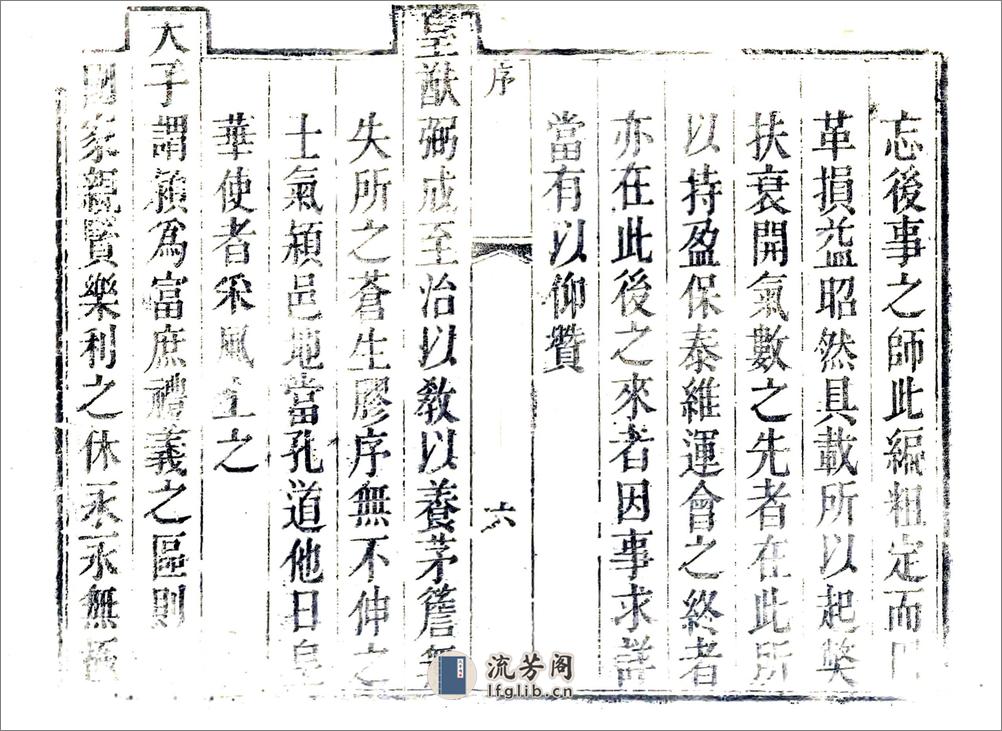 忘後事之師此編粗定而
革損益昭然具載所以起獘
扶衰開氣數之先者在此所
以持盈保泰維運會之終者
亦在此後之來者因事求詳
當有以仰贊
序
六
皇猷弼成至治以敎以養茅簷無
失所之蒼生膠序無不伸之
士氣潁邑地當孔道他日皇
華使者采風上之
天子謂潁爲富庶禮義之區則
家親賢樂利之休永永無極
流芳阁
lfglib.cn